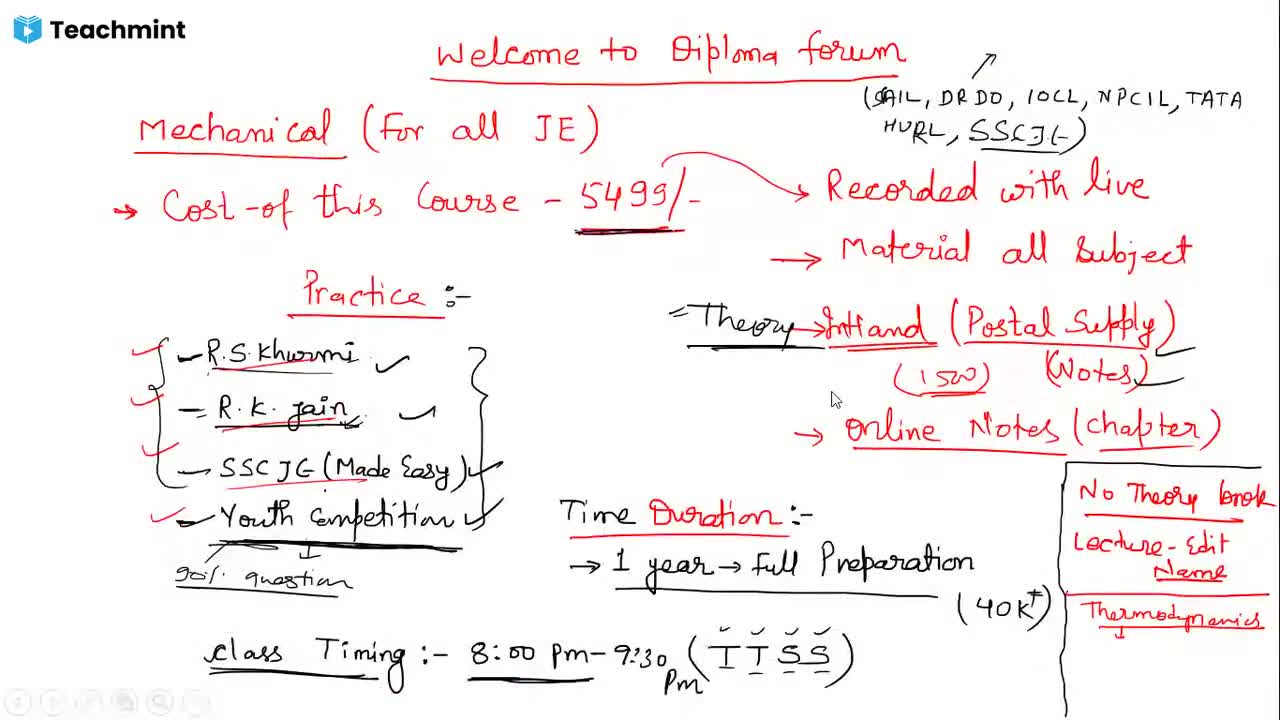 Teachmint
Welcome to Diploma forum
(SAIL, DRDO, IOCL, NPCIL, TATA
HURL, SSCJE)
Mechanical (For all JE)
→ Cost of this Course - 5499/-
→ Recorded with live
→ Material all Subject
Practice :-
= Theory → InHand (Postal Supply)
(1500) (Notes)
→ Online Notes (Chapter)
- R.S. Khurmi
= R.K. Jain
- SSC JE (Made Easy)
- Youth Competition
90% question
Time Duration :-
→ 1 year → Full Preparation
(40K+)
No Theory book
Lecture - Edit
Name
Thermodynamics
Class Timing :- 8:00 pm - 9:30 pm (T T S S)